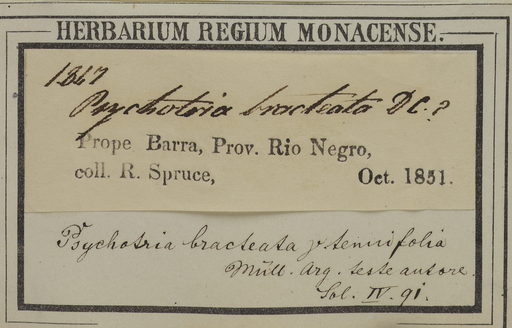 HERBARIUM REGIUM MONACENSE.
1867
Psychotria bracteata DC.?
Prope Barra, Prov. Rio Negro,
coll. R. Spruce, Oct. 1851.
Psychotria bracteata γ tenuifolia
Müll. Arg. teste autore.
Sol. IV. 91.